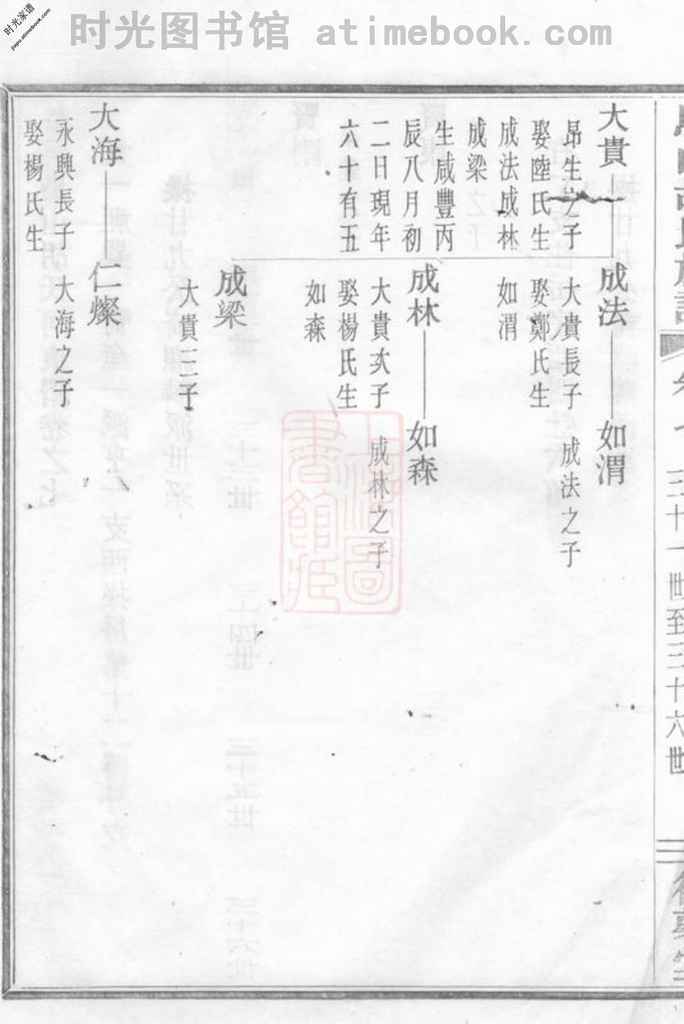 时光图书馆 atimebook.com
时光家谱
大貴
昂生之子
娶陸氏生
成法成林
成梁
生咸豐丙
辰八月初
二日現年
六十有五
成法
大貴長子
娶鄭氏生
如渭
如渭
成法之子
成林
大貴次子
娶楊氏生
如森
如森
成林之子
成梁
大貴三子
大海
永興長子
娶楊氏生
仁燦
大海之子
三十一世至三十六世